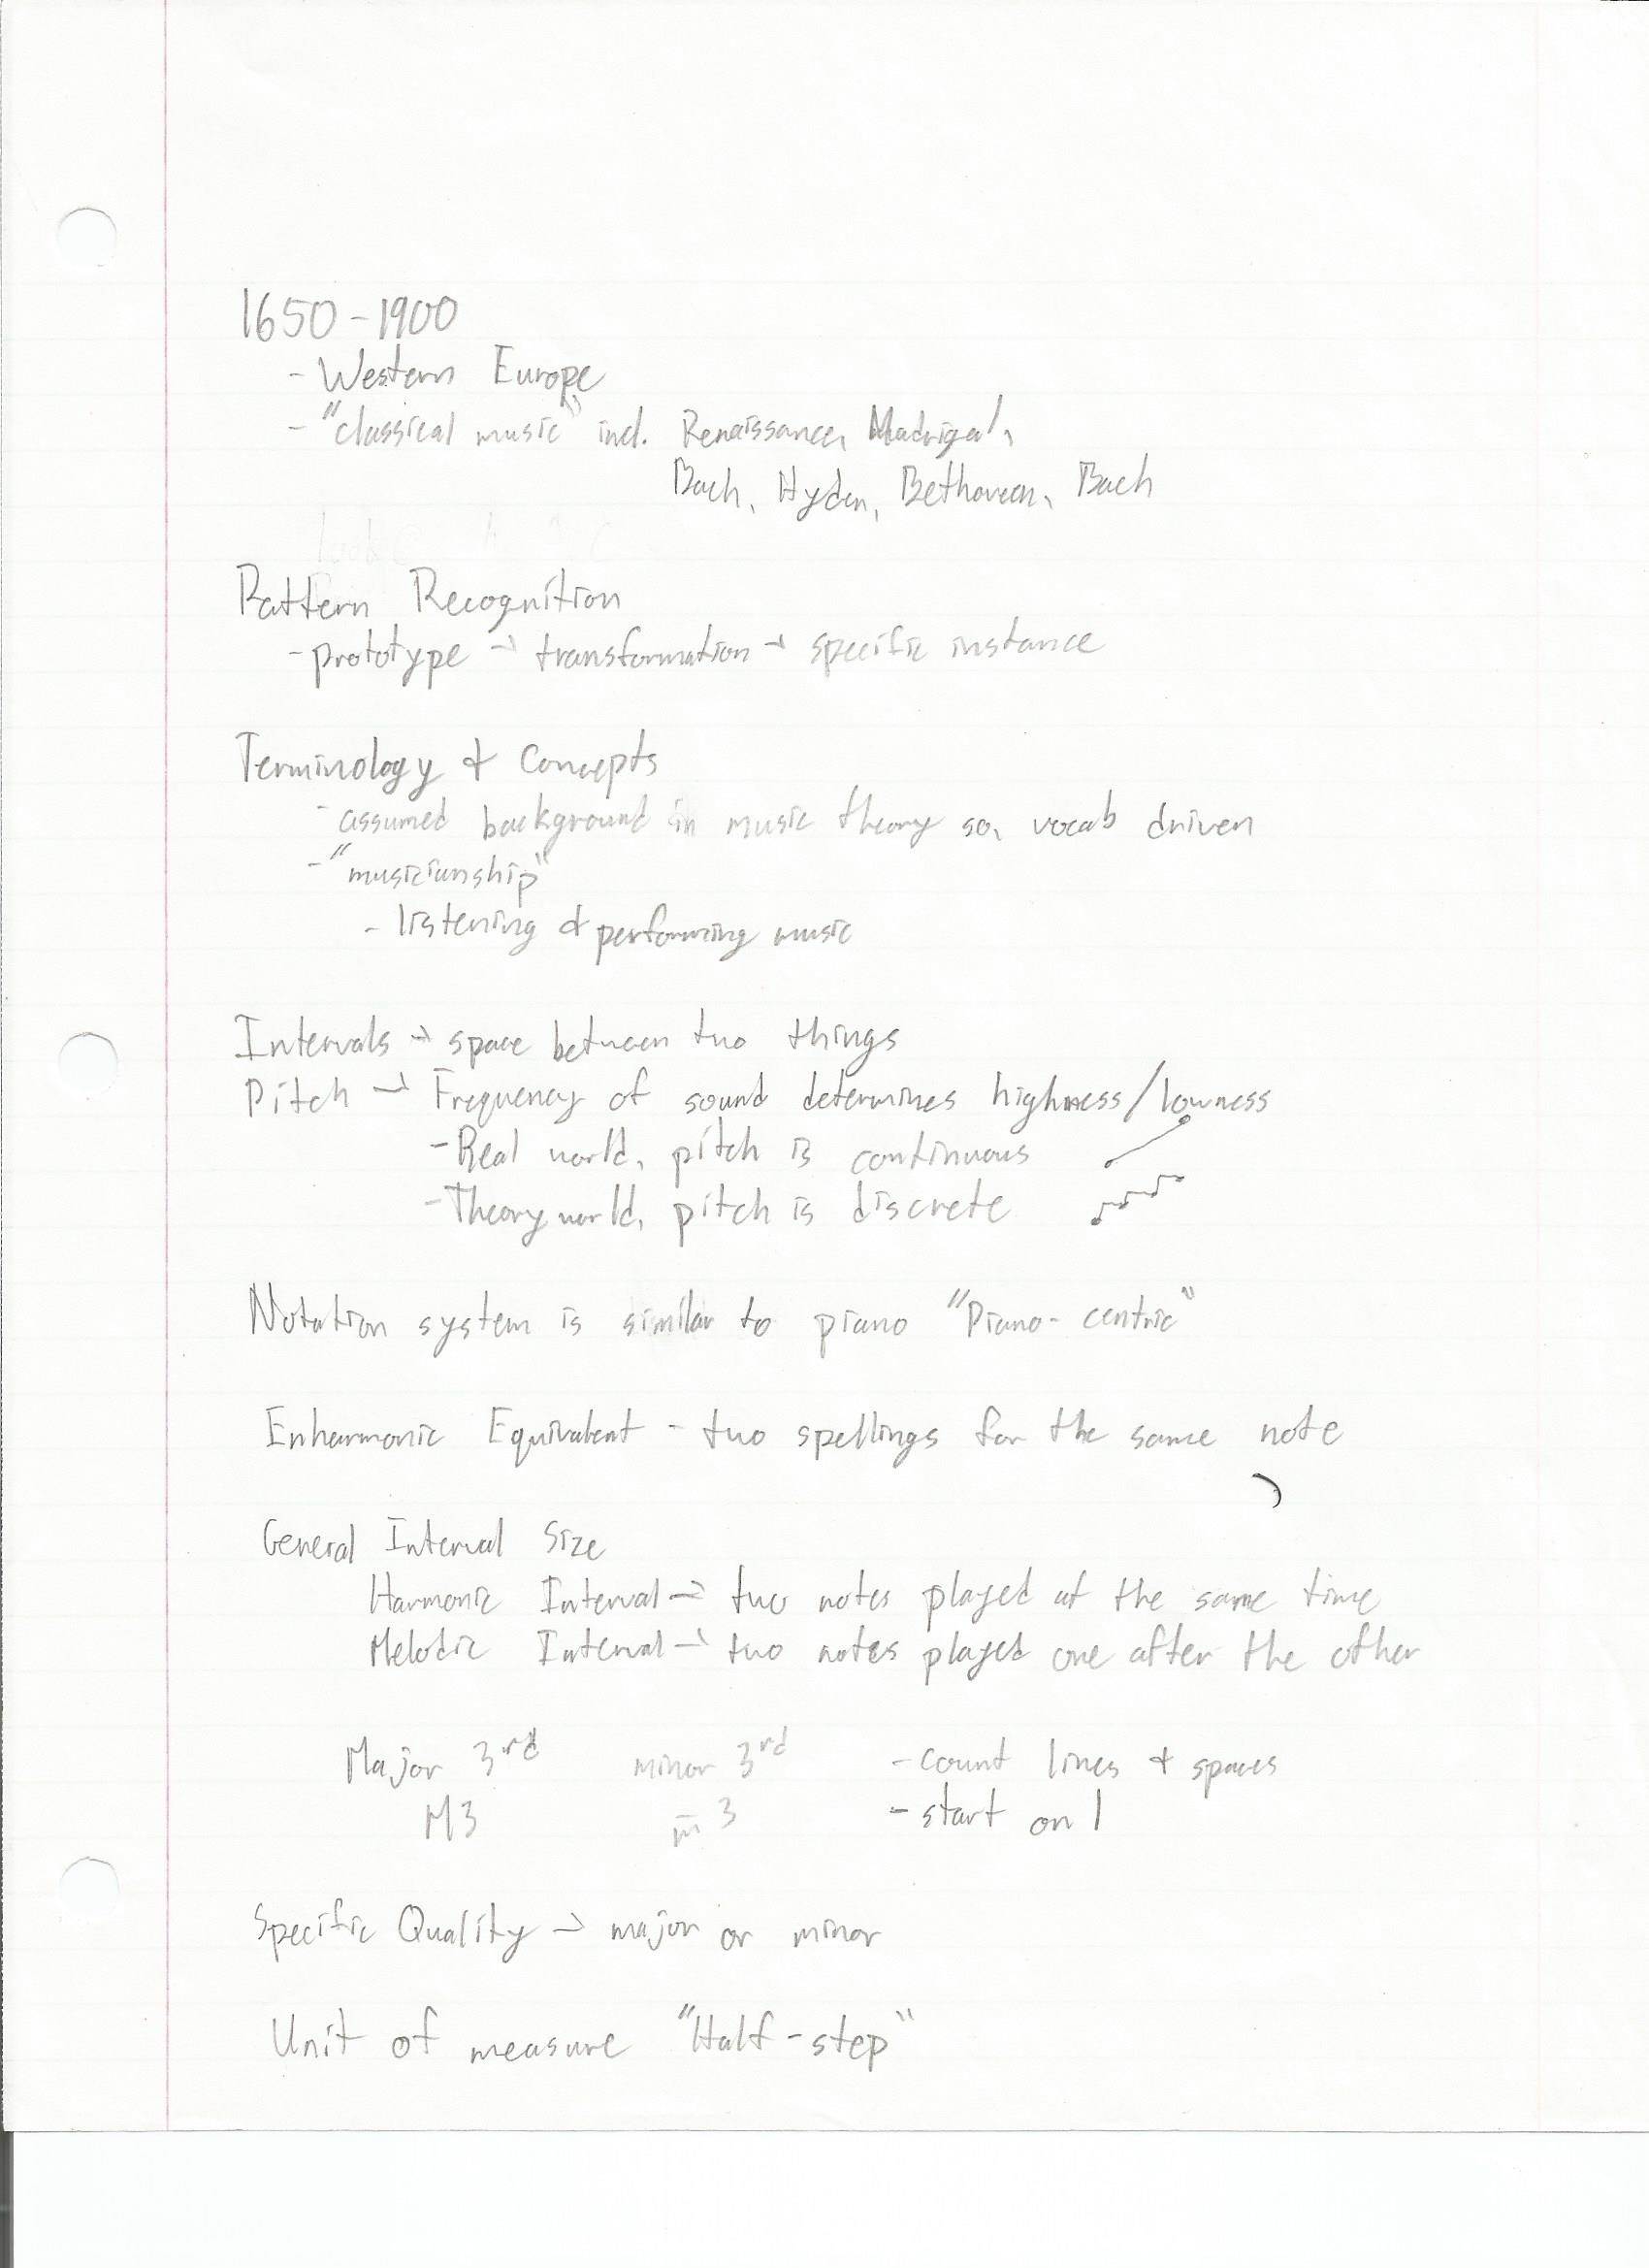 1650-1900
- Western Europe
- "classical music" incl. Renaissance, Madrigal,
Bach, Hyden, Bethoveen, Bach
Pattern Recognition
- prototype → transformation → specific instance
Terminology & Concepts
- assumed background in music theory so, vocab driven
- "musicianship"
- listening & performing music
Intervals → space between two things
Pitch → Frequency of sound determines highness/lowness
- Real world, pitch is continuous
- Theory world, pitch is discrete
Notation system is similar to piano "Piano-centric"
Enharmonic Equivalent - two spellings for the same note
General Interval Size
Harmonic Interval → two notes played at the same time
Melodic Interval → two notes played one after the other
Major 3rd minor 3rd - count lines & spaces
M3 m3 - start on 1
Specific Quality → major or minor
Unit of measure "Half-step"